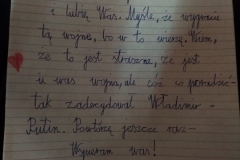 i lubię Was. Myślę, że wygracie
tą wojnę, bo w to wierzę. Wiem,
że to jest straszne, że jest
u was wojna, ale cóż co poradzić-
tak zadecydował Władimir -
Putin. Powtórzę jeszcze raz-
Wspieram was!